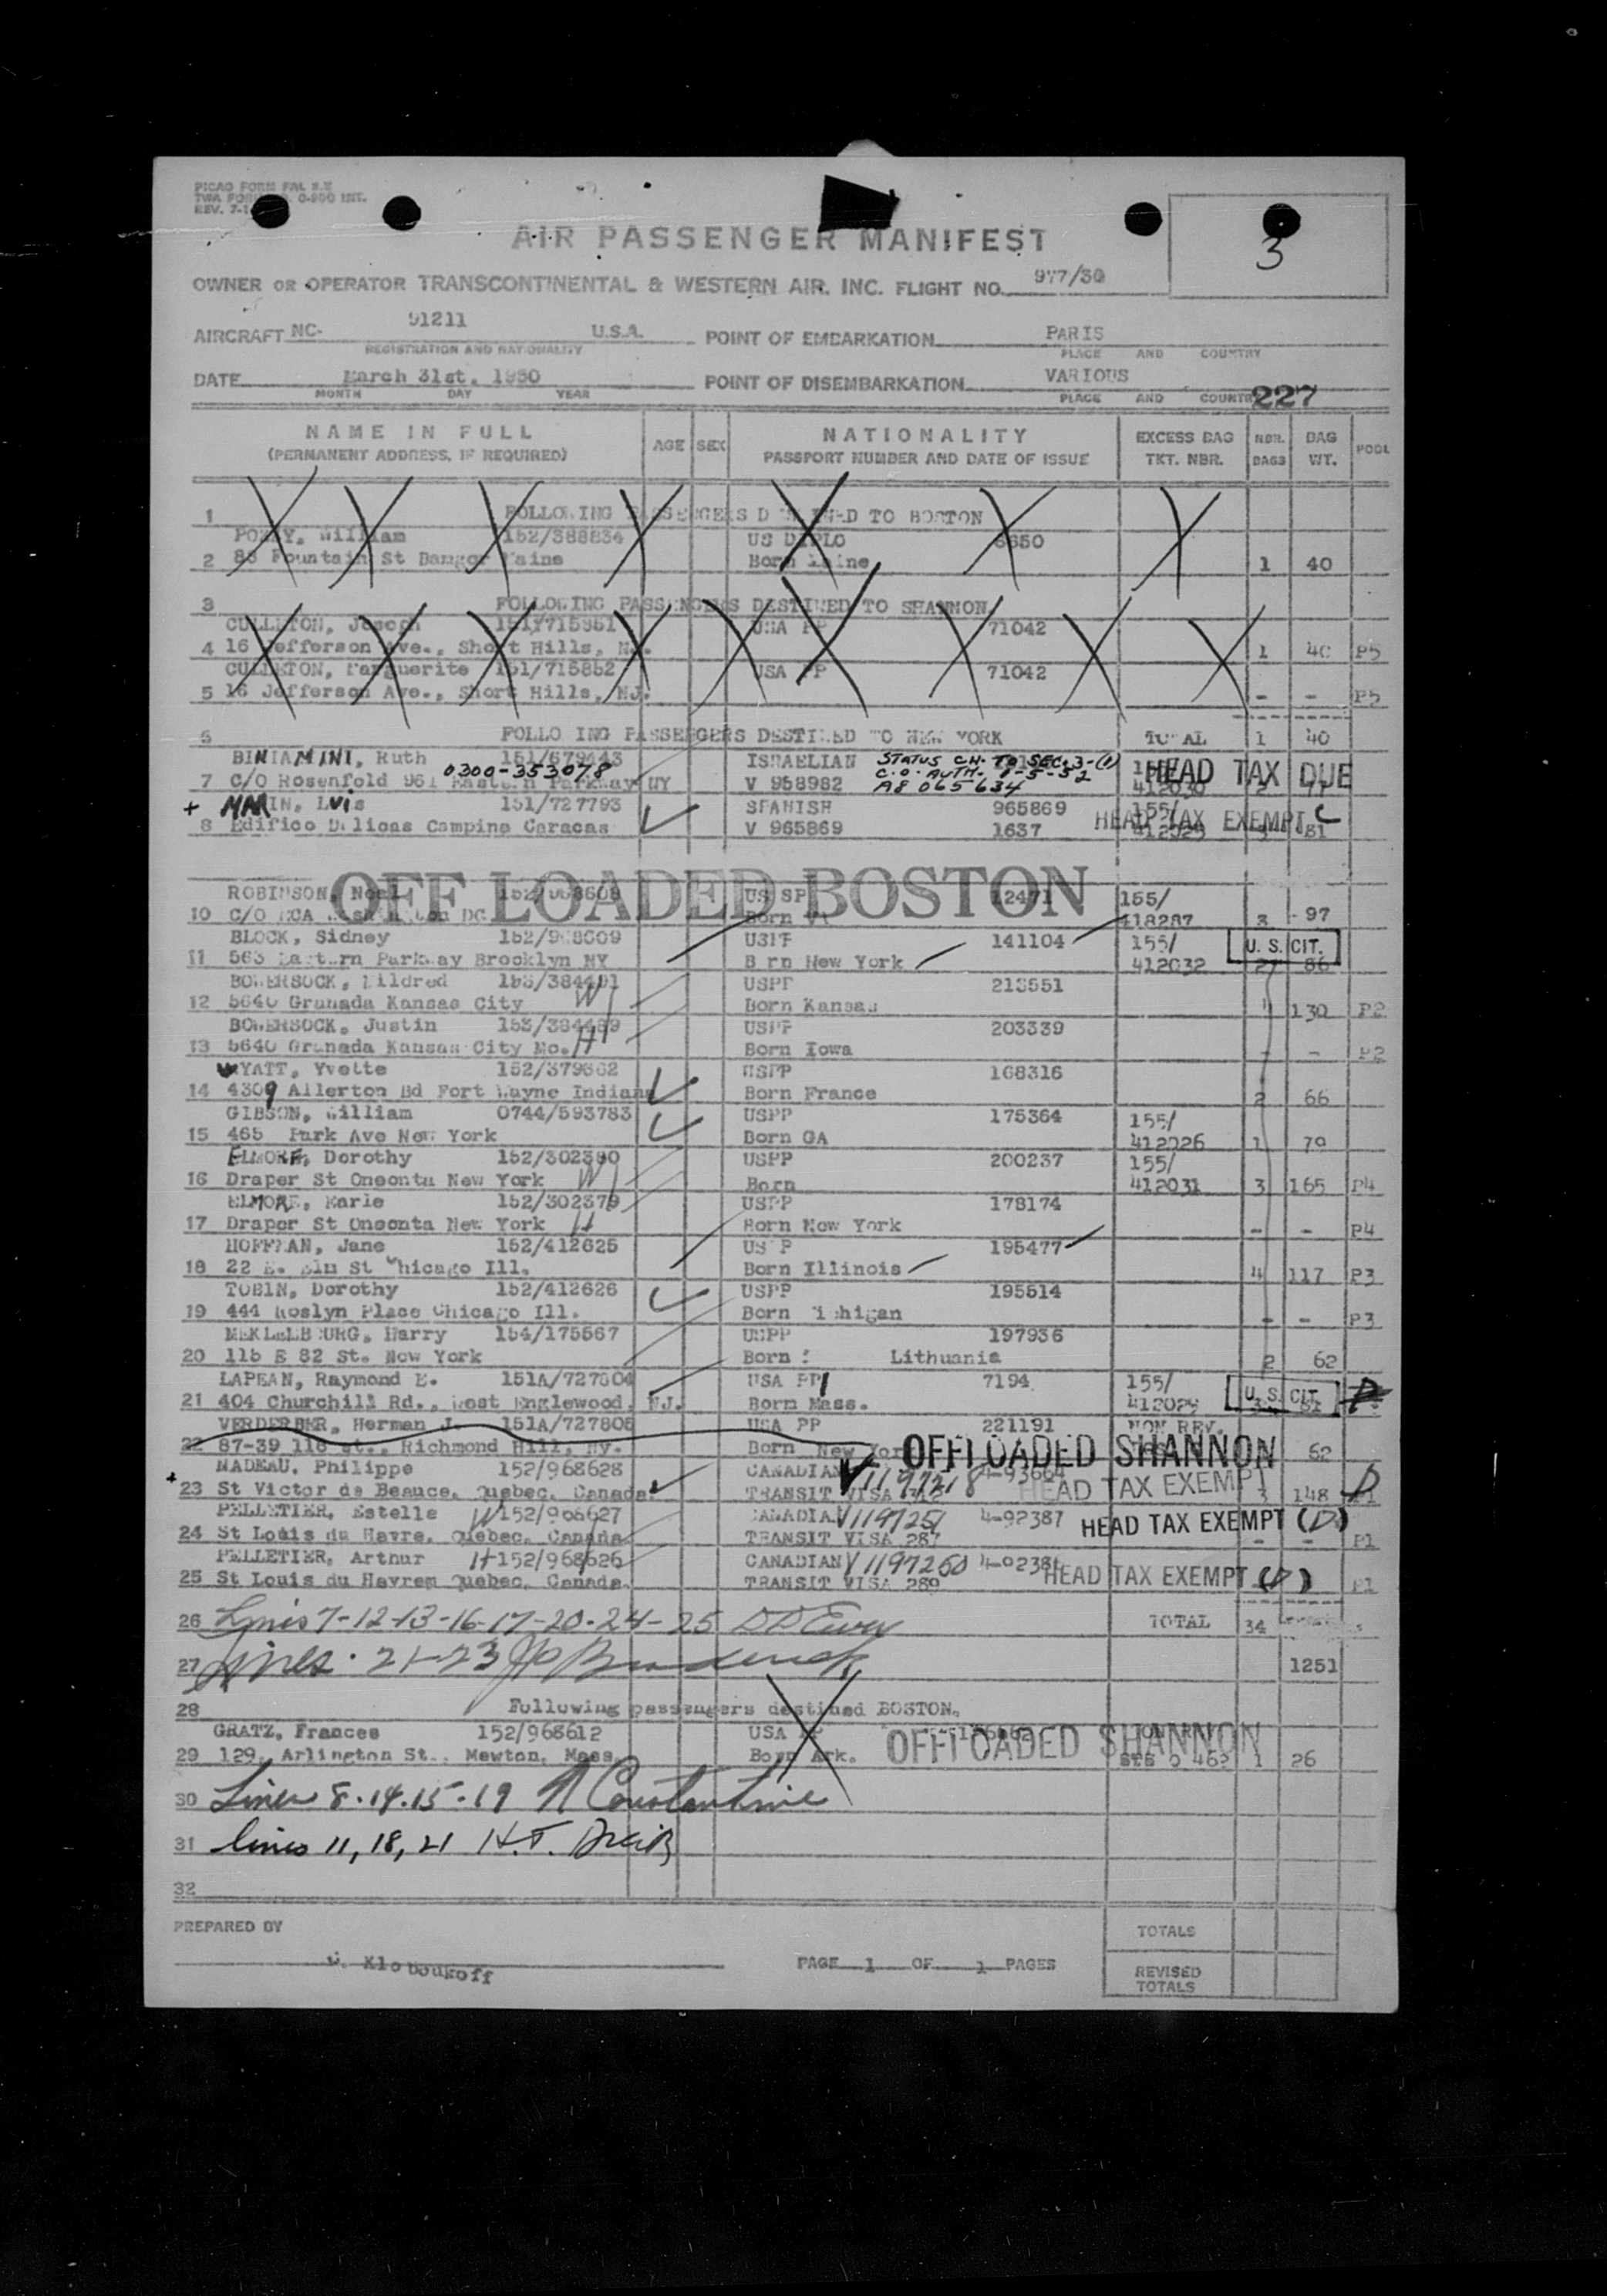 PICAO FORM FAL
REV. 7-1
3
AIR PASSENGER MANIFEST
OWNER OR OPERATOR TRANSCONTINENTAL & WESTERN AIR, INC. FLIGHT NO. 977/30
AIRCRAFT NC- 91211 U.S.A. POINT OF EMBARKATION PARIS
REGISTRATION AND NATIONALITY PLACE AND COUNTRY
DATE March 31st, 1950 POINT OF DISEMBARKATION VARIOUS
MONTH DAY YEAR PLACE AND COUNTRY
227
NAME IN FULL AGE SEX NATIONALITY EXCESS BAG NBR. BAG PODL
(PERMANENT ADDRESS, IF REQUIRED) PASSPORT NUMBER AND DATE OF ISSUE TKT. NBR. BAGS WT.
1 FOLLOWING PASSENGERS TO BOSTON
William 152/388834 US DIPLO
2 Fountain St Bangor Maine Born Maine 1 40
3 FOLLOWING PASSENGERS DESTINED TO SHANNON
CULLETON, Joseph USA PP 71042
4 16 Jefferson Ave., Short Hills, 1 40 P5
CULLETON, Marguerite 151/715852 USA PP 71042
5 16 Jefferson Ave., Short Hills, NJ. - - P5
6 FOLLO ING PASSENGERS DESTINED TO NEW YORK TOTAL 1 40
BINIAMINI, Ruth ISRAELIAN STATUS CH. TO SEC. 3-(1)
0300-353078 C.O. AUTH. HEAD TAX DUE
7 C/O Rosenfold 961 Eastern Parkway NY V 958982 A8 065634 412030 2
+ Luis 151/727793 SPANISH 965869 155/
8 Edifico Campino Caracas V 965869 1637 HEAD TAX EXEMPT C 81
OFF LOADED BOSTON
ROBINSON, US SP 12471 155/
10 C/O DC Born 418287 3 97
BLOCK, Sidney 141104 155/ U. S. CIT.
11 563 Eastern Parkway Brooklyn NY B rn New York 412032 86
BOWERSOCK, Mildred USPP 213551
12 5640 Granada Kansas City W Born Kansas 130 P2
BOWERSOCK, Justin USPP 203339
13 5640 Granada Kansas City Mo. H Born Iowa - - P2
WYATT, Yvette USPP 168316
14 4309 Allerton Bd Fort Wayne Indiana Born France 2 66
GIBSON, William 0744/593783 USPP 175364 155/
15 465 Park Ave New York Born GA 412026 1 79
ELMORE, Dorothy 152/302380 USPP 200237 155/
16 Draper St Oneonta New York W Born 412031 3 165 P4
ELMORE, Earle 152/302379 USPP 178174
17 Draper St Oneonta New York H Born New York - - P4
HOFFMAN, Jane 152/412625 US P 195477
18 22 E. Elm St Chicago Ill. Born Illinois 4 117 P3
TOBIN, Dorothy 152/412626 USPP 195514
19 444 Roslyn Place Chicago Ill. Born Michigan - - P3
Harry 154/175567 USPP 197936
20 115 E 82 St. New York Born : Lithuania 2 62
LAPEAN, Raymond E. 151A/727804 USA PP 7194 155/ U. S. CIT.
21 404 Churchill Rd., West Englewood, NJ. Born Mass. 412029
VERDERBER, Herman J. 151A/727805 USA PP 221191 NON REV.
22 87-39 118 St., Richmond Hill, NY. Born New York OFFLOADED SHANNON 62
NADEAU, Philippe 152/968628 CANADIAN V 1197218 4-93664
23 St Victor de Beauce, Quebec, Canada. TRANSIT VISA HEAD TAX EXEMPT 3 148
PELLETIER, Estelle W 152/968627 CANADIAN V 1197251 4-92387 HEAD TAX EXEMPT (D)
24 St Louis du Havre, Quebec, Canada TRANSIT VISA 287 - - P1
PELLETIER, Arthur H 152/968626 CANADIAN V 1197250 HEAD TAX EXEMPT (D)
25 St Louis du Havrem Quebec, Canada. TRANSIT VISA 289 P1
26 Lines 7-12-13-16-17-20-24-25 TOTAL 34
27 Lines 21-23 1251
28 Following passengers destined BOSTON.
GRATZ, Frances 152/968612 USA
29 129, Arlington St., Newton, Mass. Born Ark. OFFLOADED SHANNON 1 26
30 Lines 8-14-15-19 Constantine
31 lines 11, 18, 21 H.T.
32
PREPARED BY TOTALS
Kloboukoff PAGE 1 OF 1 PAGES
REVISED
TOTALS